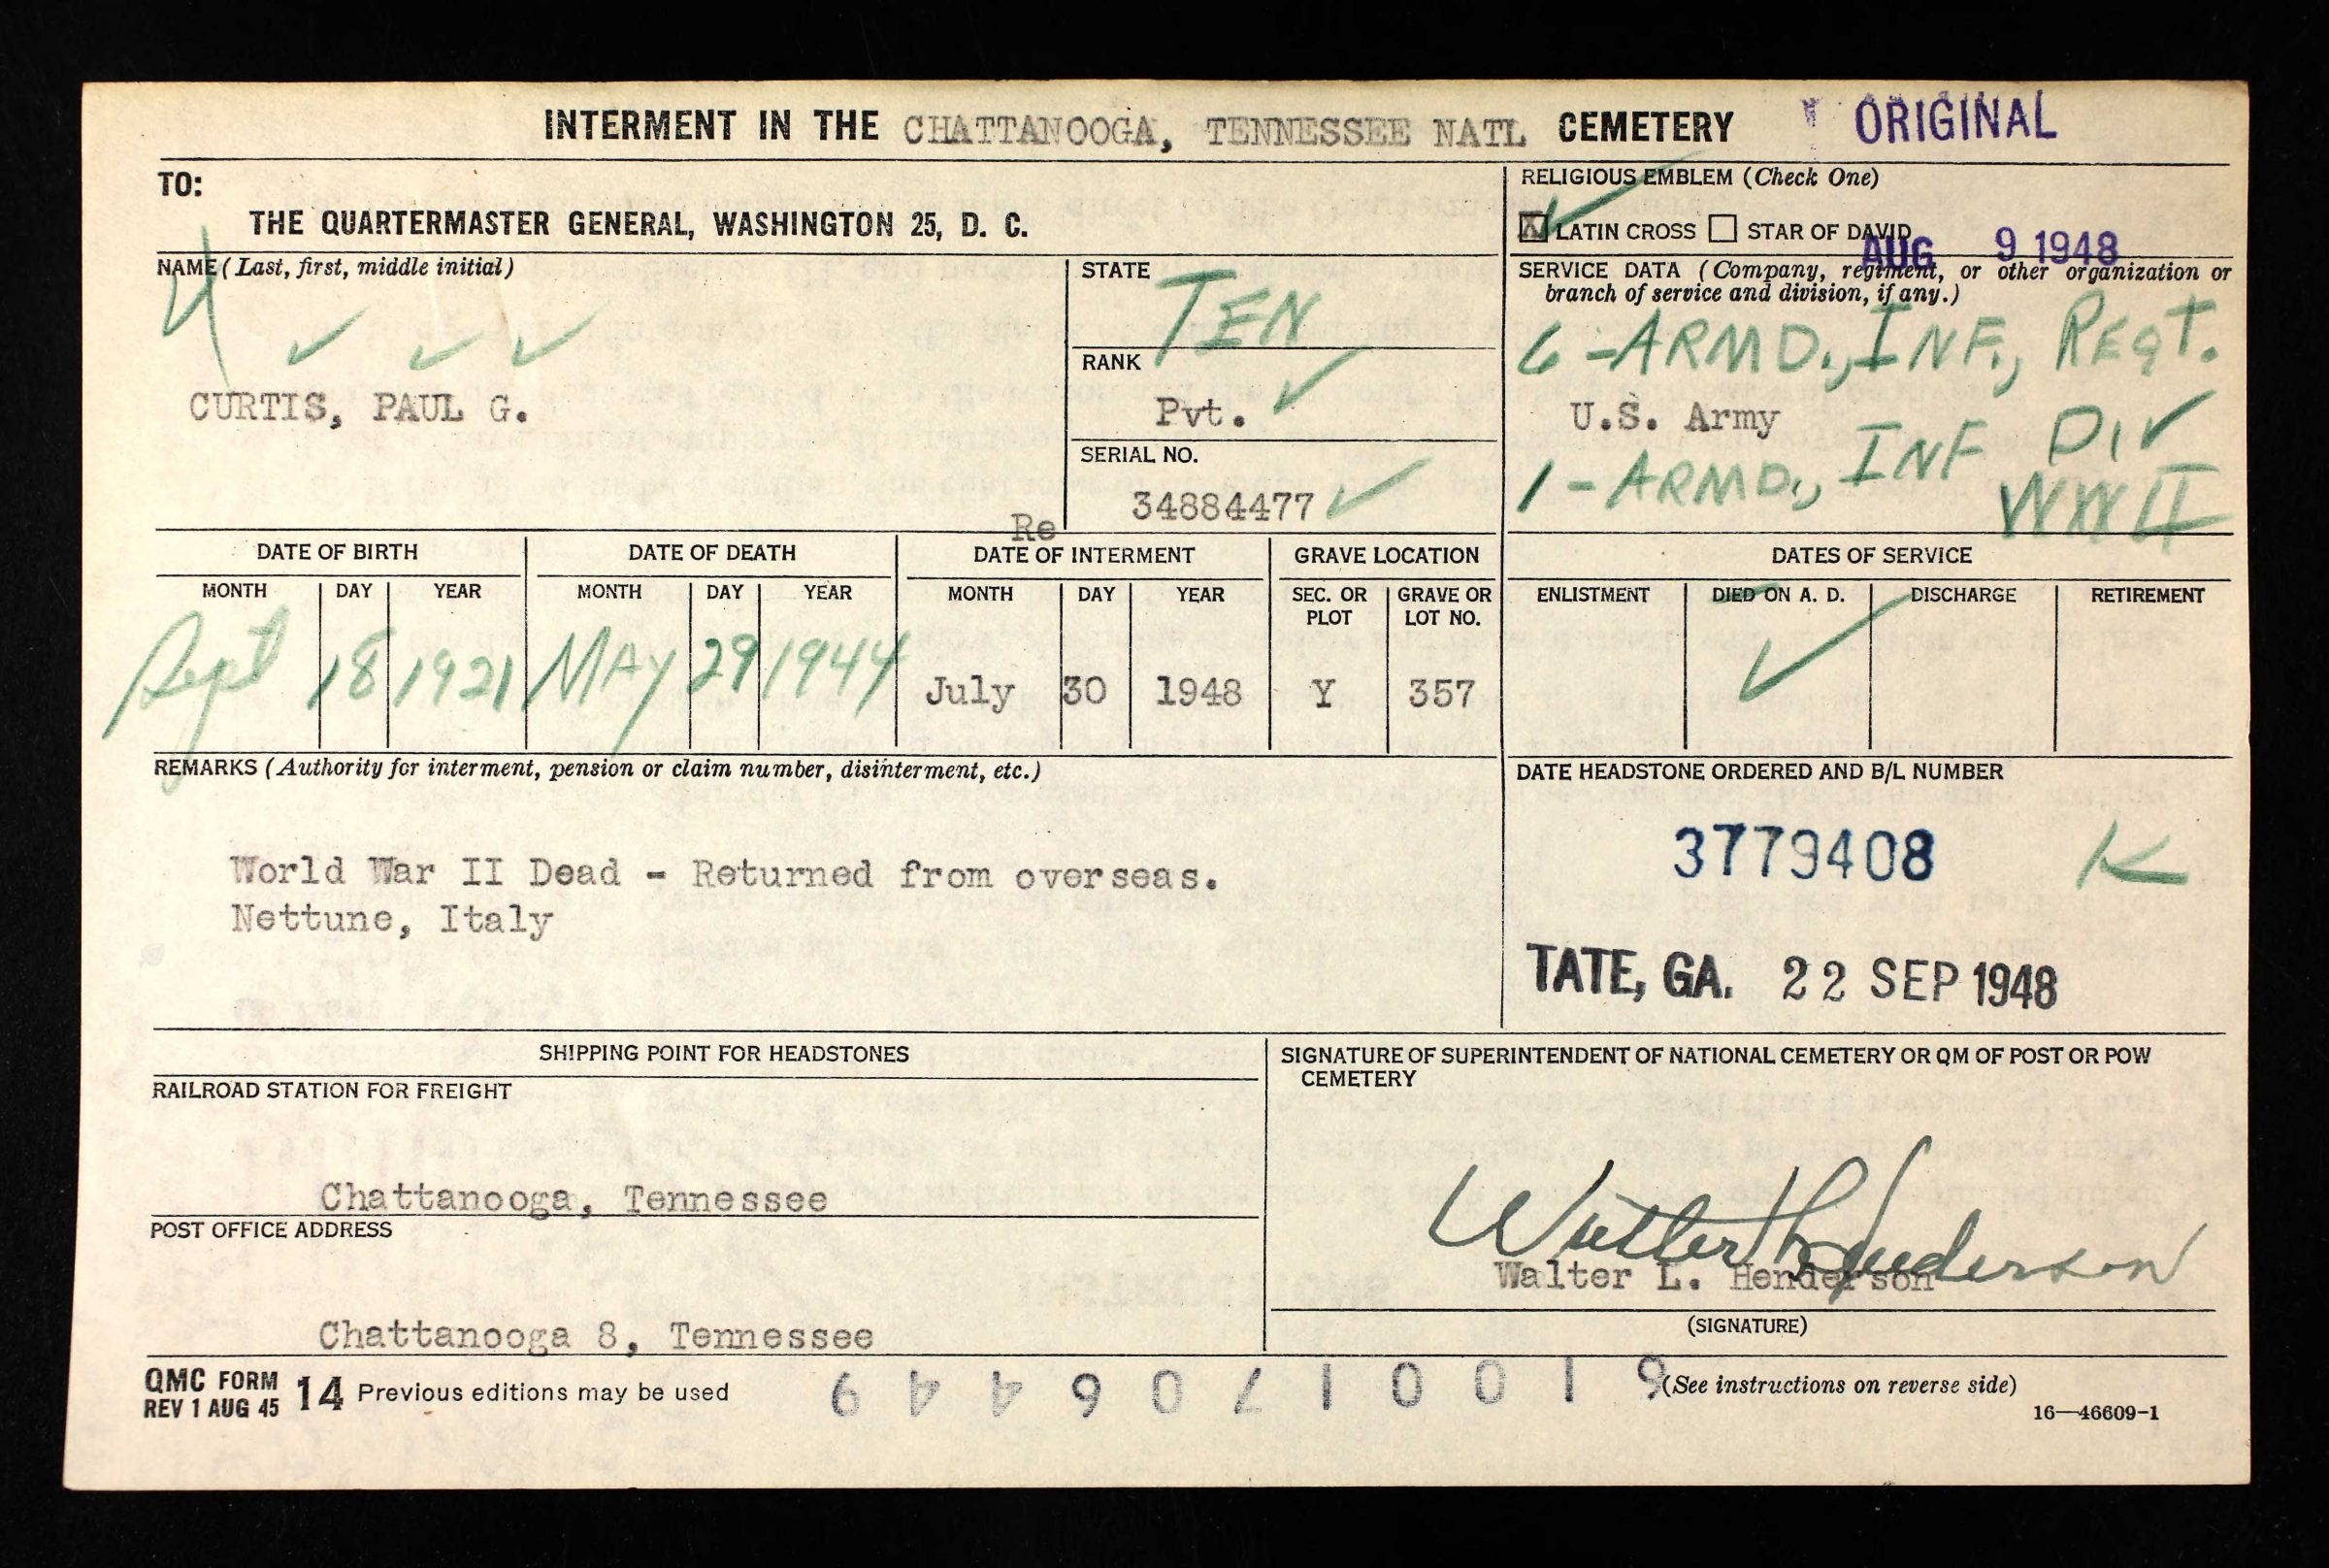 INTERMENT IN THE CHATTANOOGA, TENNESSEE NATL CEMETERY ORIGINAL
TO:
THE QUARTERMASTER GENERAL, WASHINGTON 25, D. C.
RELIGIOUS EMBLEM (Check One)
X LATIN CROSS STAR OF DAVID
AUG 9 1948
NAME (Last, first, middle initial)
CURTIS, PAUL G.
STATE
TEN
RANK
Pvt.
SERIAL NO.
34884477
SERVICE DATA (Company, regiment, or other organization or
branch of service and division, if any.)
6-ARMD., INF., REGT.
U.S. Army
1-ARMD., INF DIV
WW II
DATE OF BIRTH DATE OF DEATH Re DATE OF INTERMENT GRAVE LOCATION
MONTH DAY YEAR MONTH DAY YEAR MONTH DAY YEAR SEC. OR PLOT GRAVE OR LOT NO.
Sept 18 1921 MAY 29 1944 July 30 1948 Y 357
DATES OF SERVICE
ENLISTMENT DIED ON A. D. DISCHARGE RETIREMENT
REMARKS (Authority for interment, pension or claim number, disinterment, etc.)
World War II Dead - Returned from overseas.
Nettune, Italy
DATE HEADSTONE ORDERED AND B/L NUMBER
3779408 K
TATE, GA. 22 SEP 1948
SHIPPING POINT FOR HEADSTONES
RAILROAD STATION FOR FREIGHT
Chattanooga, Tennessee
POST OFFICE ADDRESS
Chattanooga 8, Tennessee
SIGNATURE OF SUPERINTENDENT OF NATIONAL CEMETERY OR QM OF POST OR POW
CEMETERY
Walter L Henderson
Walter L. Henderson
(SIGNATURE)
QMC FORM 14 Previous editions may be used
REV 1 AUG 45
(See instructions on reverse side)
16—46609-1